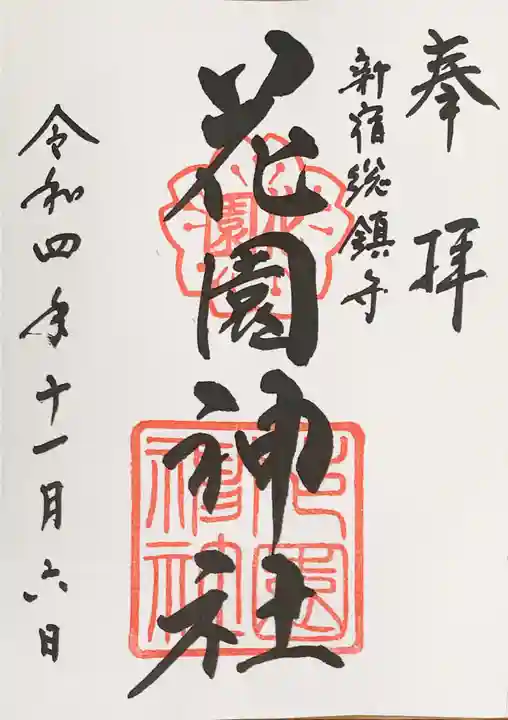 奉拝
新宿総鎮守
花園神社
令和四年十一月六日
花園神社